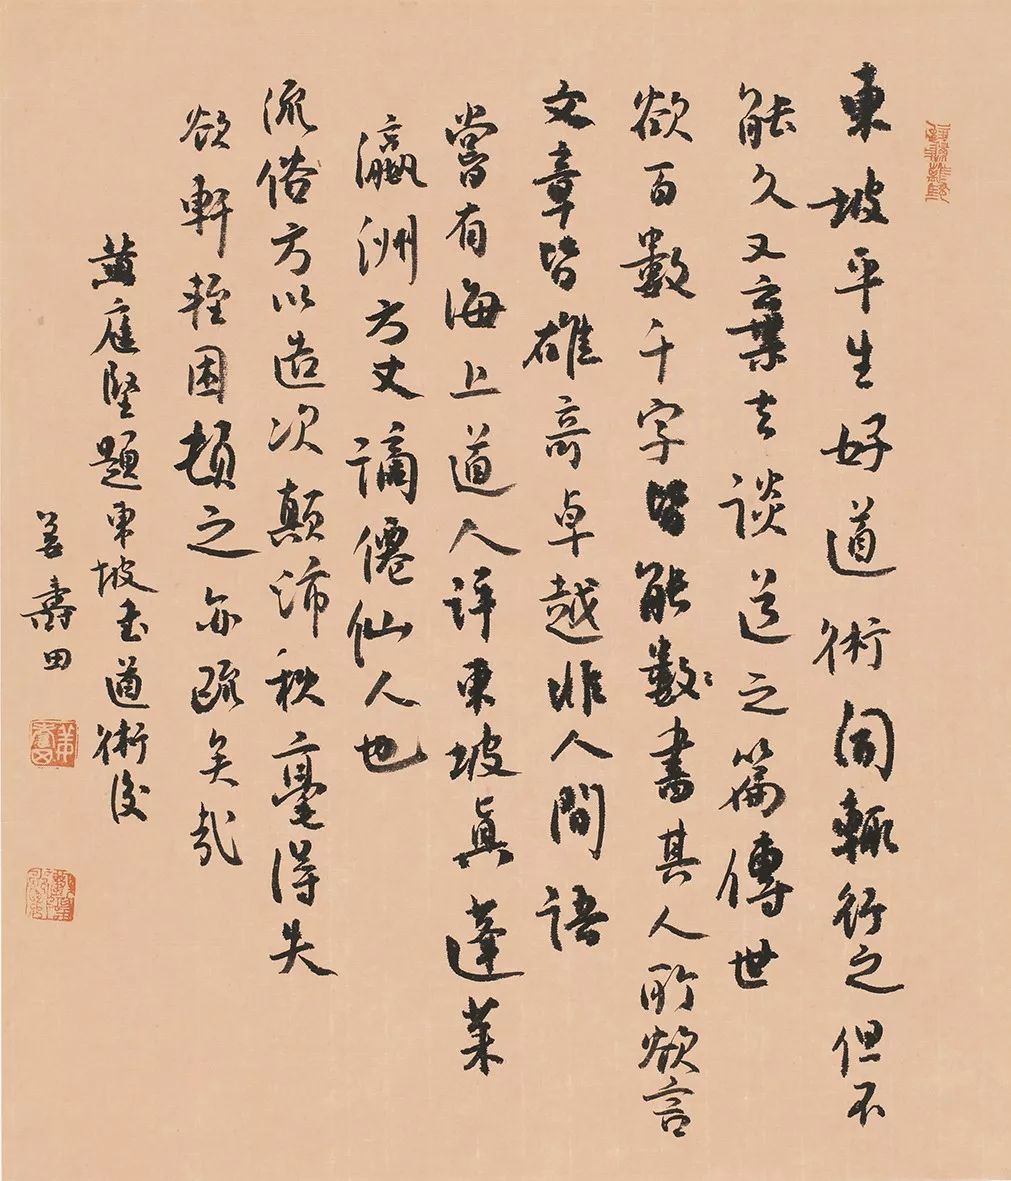 東坡平生好道術聞輒行之但不
能久又棄去談道之篇傳世
欲百數千字皆能數〻書其人所欲言
文章皆雄奇卓越非人間語
嘗有海上道人評東坡真蓬萊
瀛洲方丈謫僊仙人也
流俗方以造次顛沛秋毫得失
欲軒輊困頓之亦疏矣哉
黃庭堅題東坡書道術後
姜壽田
姜壽田